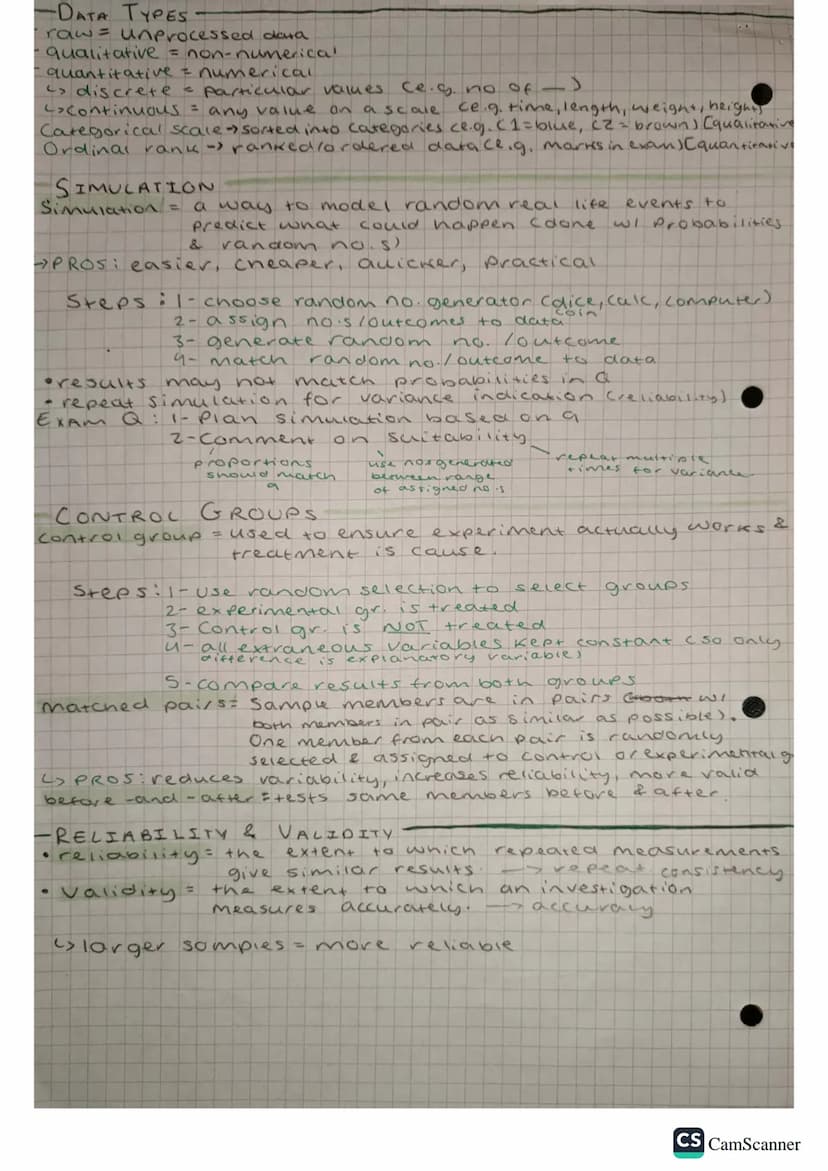 -DATA TYPES
raw = unprocessed data
qualitative = non-numerical
quantitative = numerical
↳ discrete = particular values (e.g. no of —)
↳continuous = any value on a scale (e.g. time, length, weight, height)
Categorical scale → sorted into categories (e.g. C1=blue, C2=brown) [qualitative
Ordinal rank → ranked/ordered data (e.g. marks in exam) [quantitative
SIMULATION
Simulation = a way to model random real life events to
predict what could happen (done w/ probabilities
& random no.s)
→PROS: easier, cheaper, quicker, practical
Steps: 1- choose random no. generator (dice, calc, computer)
coin
2- assign no.s/outcomes to data
3- generate random no. /outcome
4- match random no./outcome to data
•results may not match probabilities in Q
• repeat simulation for variance indication (reliability)
EXAM Q: 1- Plan simulation based on q
2-Comment on suitability
proportions should match q
use nos generated between range of assigned no.s
repeat multiple times for variance
CONTROL GROUPS
control group = used to ensure experiment actually works &
treatment is cause.
Steps: 1- use random selection to select groups
2- experimental gr. is treated
3- Control gr. is NOT treated
4- all extraneous variables kept constant (so only
difference is explanatory variable)
5- compare results from both groups
matched pairs= Sample members are in pairs w/
both members in pair as similar as possible).
One member from each pair is randomly
selected & assigned to control or experimental g
↳ PROS: reduces variability, increases reliability, more valid
before-and-after = tests same members before & after.
-RELIABILITY & VALIDITY
• reliability = the extent to which repeated measurements
give similar results. → repeat consistency
• Validity = the extent to which an investigation
measures accurately. → accuracy
↳ larger samples = more reliable
CS CamScanner